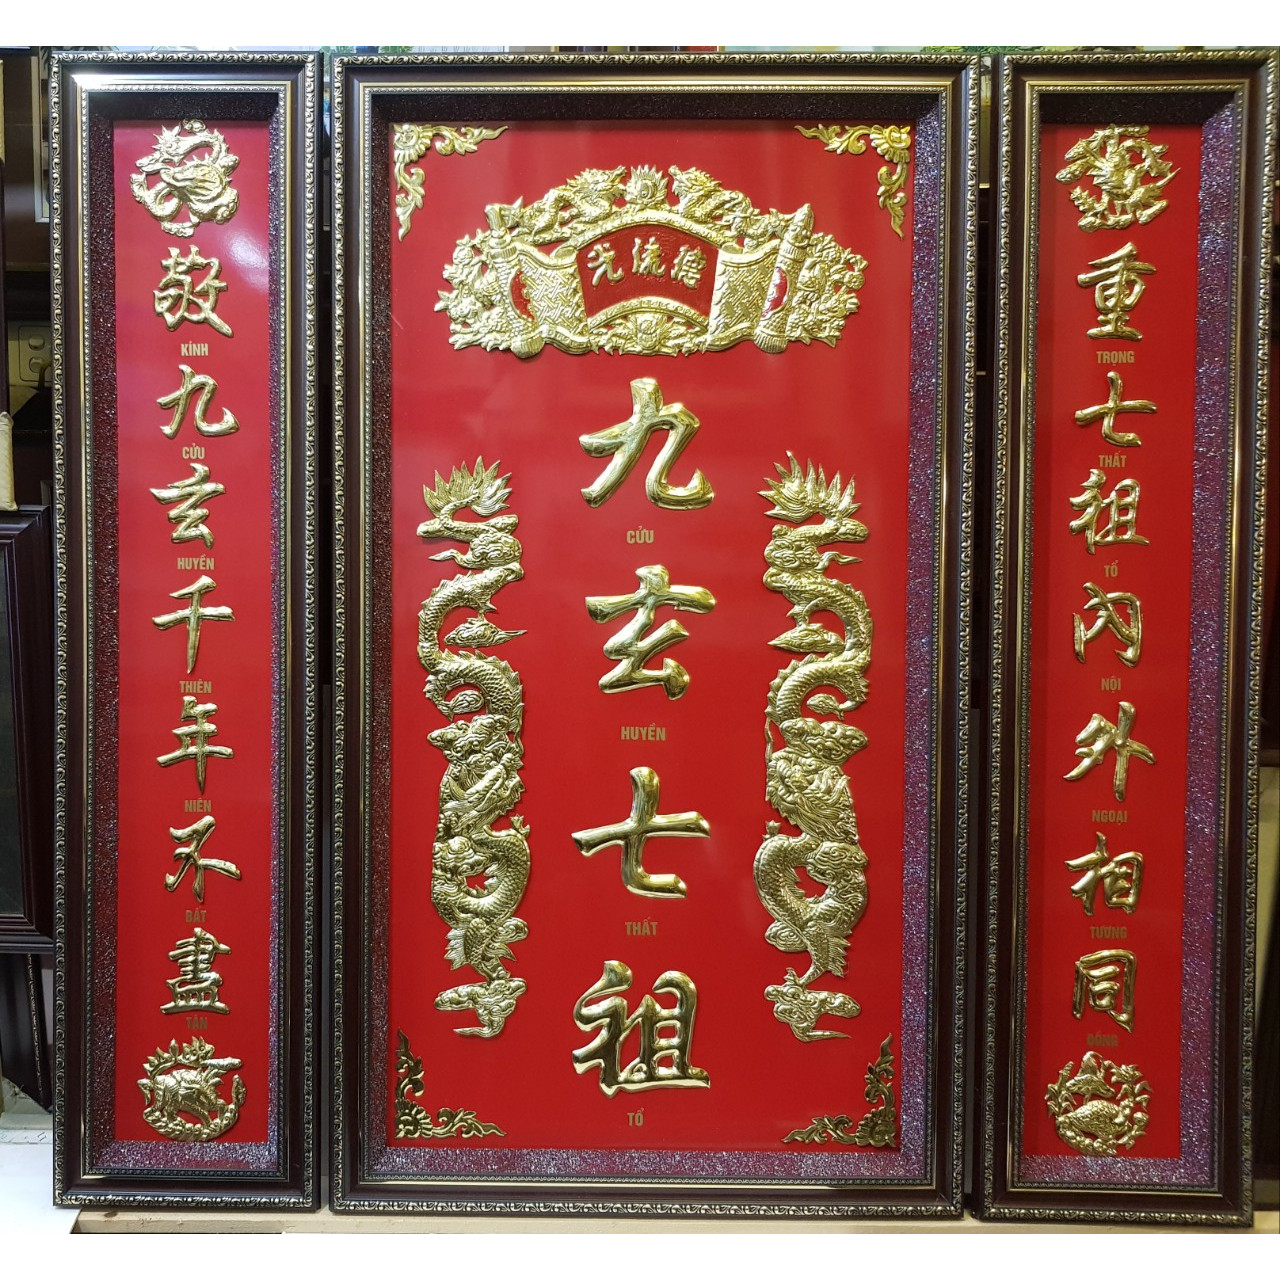 敬
KÍNH
九
CỬU
玄
HUYỀN
千
THIÊN
年
NIÊN
不
BẤT
盡
TẬN
德流光
九
CỬU
玄
HUYỀN
七
THẤT
祖
TỔ
重
TRỌNG
七
THẤT
祖
TỔ
內
NỘI
外
NGOẠI
相
TƯƠNG
同
ĐỒNG